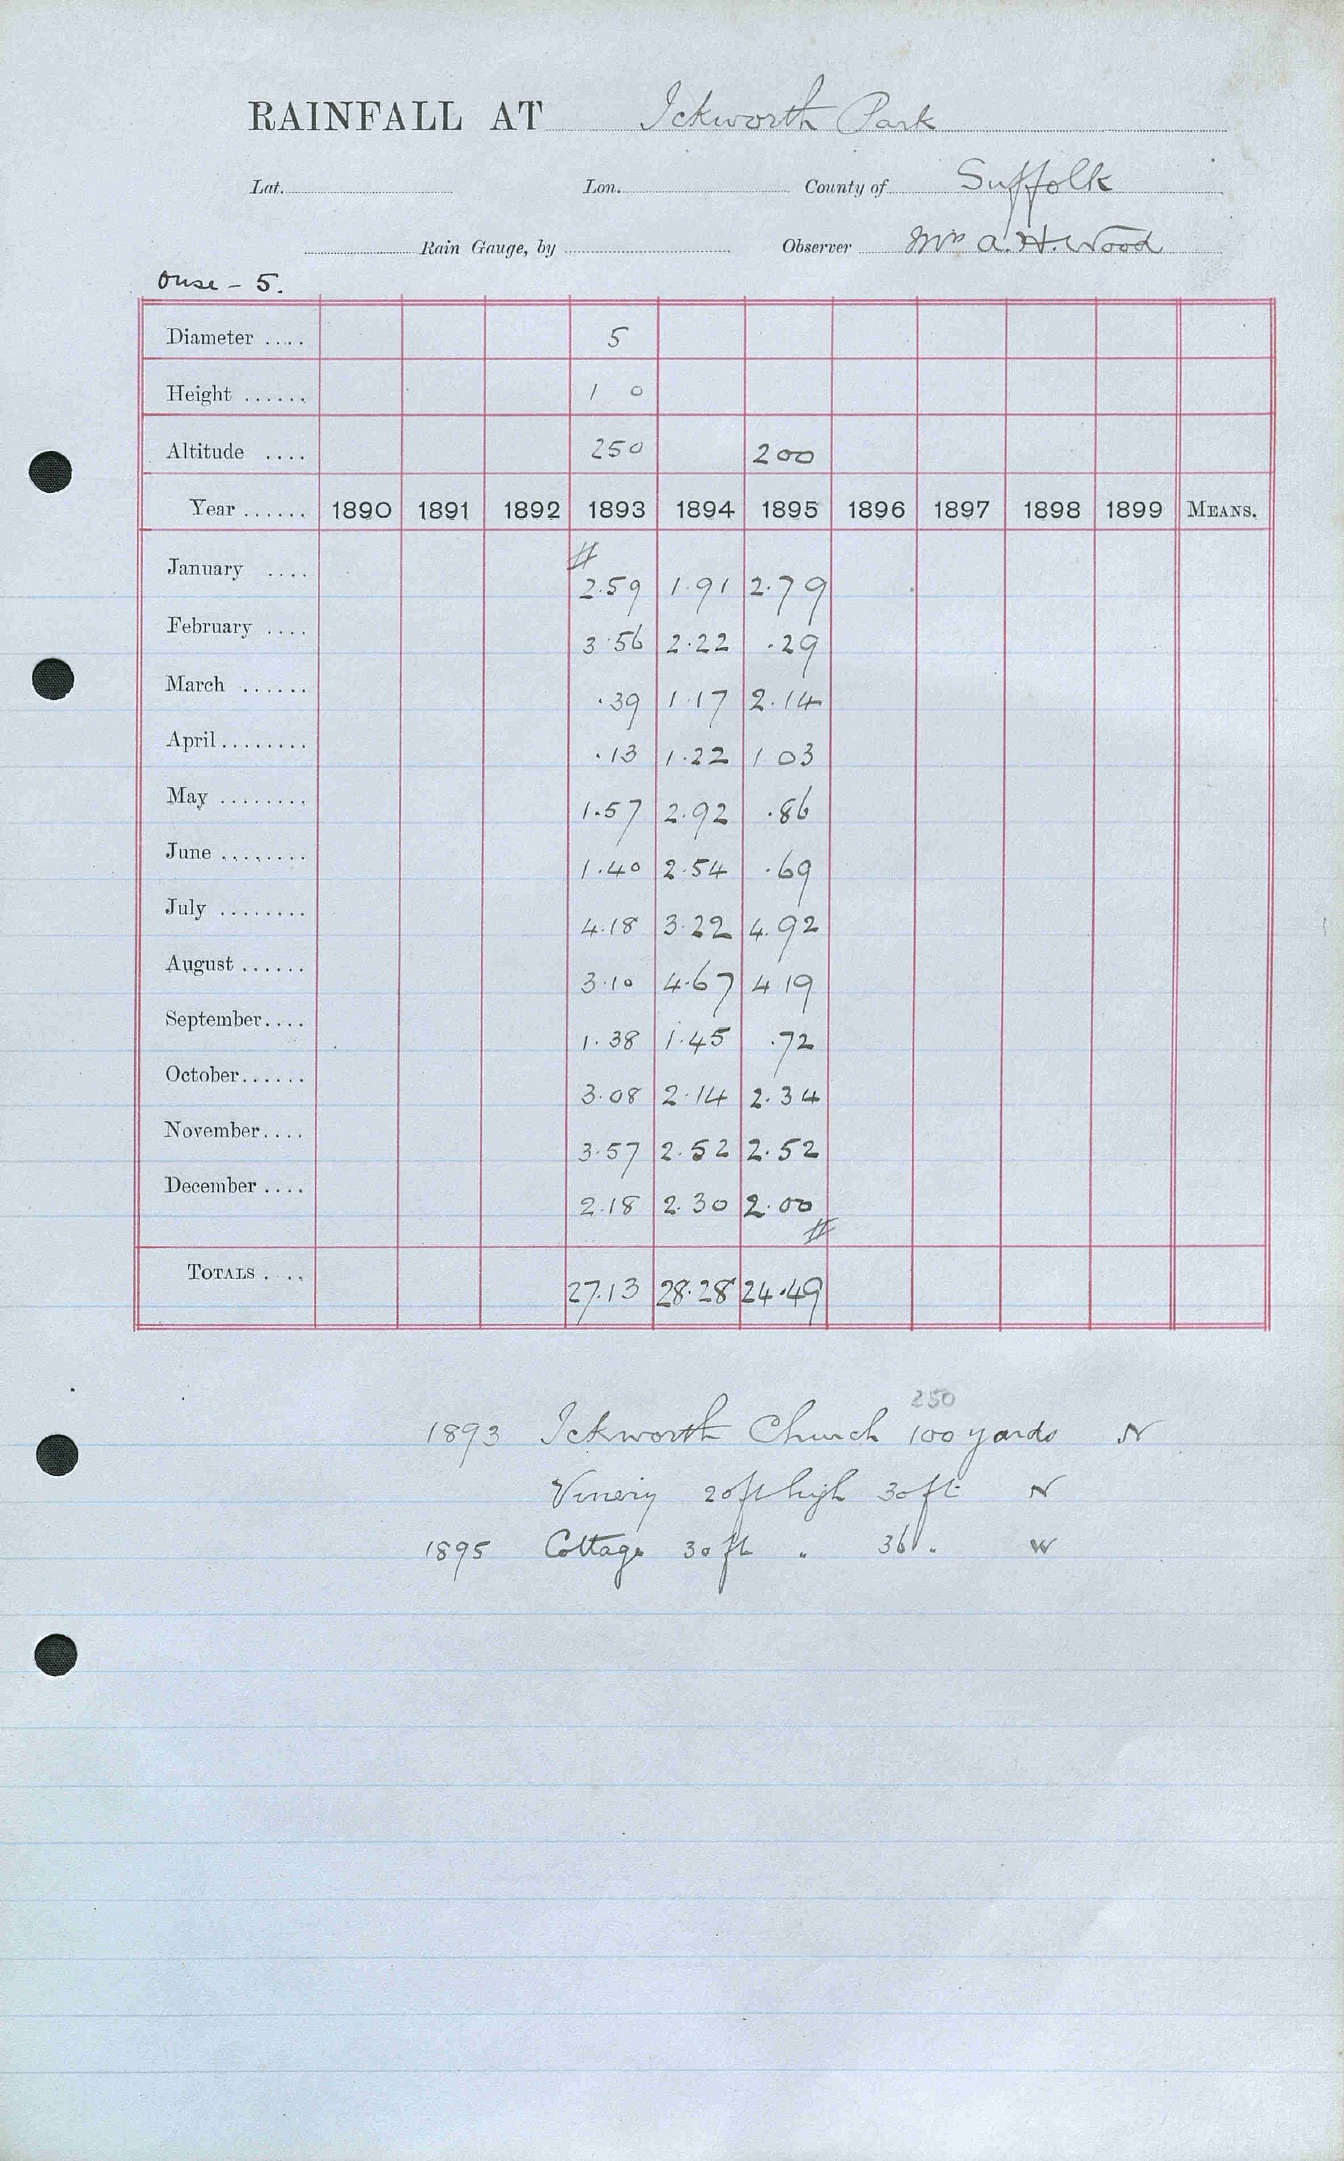 RAINFALL AT Ickworth Park
Lat. Lon. County of Suffolk
Rain Gauge, by Observer Mrs A. H. Wood
Ouse - 5.
Diameter .... 5
Height ...... 1 0
Altitude .... 250 200
Year ...... 1890 1891 1892 1893 1894 1895 1896 1897 1898 1899 MEANS.
#
January .... 2.59 1.91 2.79
February .... 3.56 2.22 .29
March ...... .39 1.17 2.14
April ........ .13 1.22 1 03
May ........ 1.57 2.92 .86
June ........ 1.40 2.54 .69
July ........ 4.18 3.22 4.92
August ...... 3.10 4.67 4 19
September .... 1.38 1.45 .72
October ...... 3.08 2.14 2.34
November .... 3.57 2.52 2.52
December .... 2.18 2.30 2.00
#
TOTALS .... 27.13 28.28 24.49
250
1893 Ickworth Church 100 yards N
Vinery 20ft high 30ft N
1895 Cottage 30ft " 36 " W